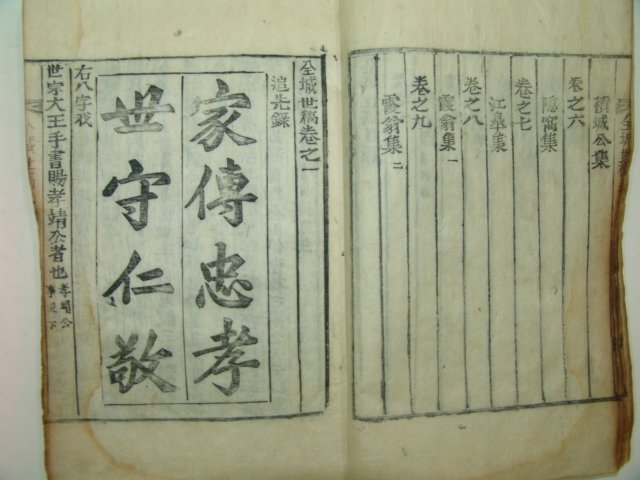 積城公集
卷之六
隱窩集
卷之七
江皐集
卷之八
霞翁集 一
卷之九
霞翁集 二
全城世稿卷之一
追先錄
家傳忠孝
世守仁敬
右八字我
世宗大王手書賜孝靖公者也 孝靖公